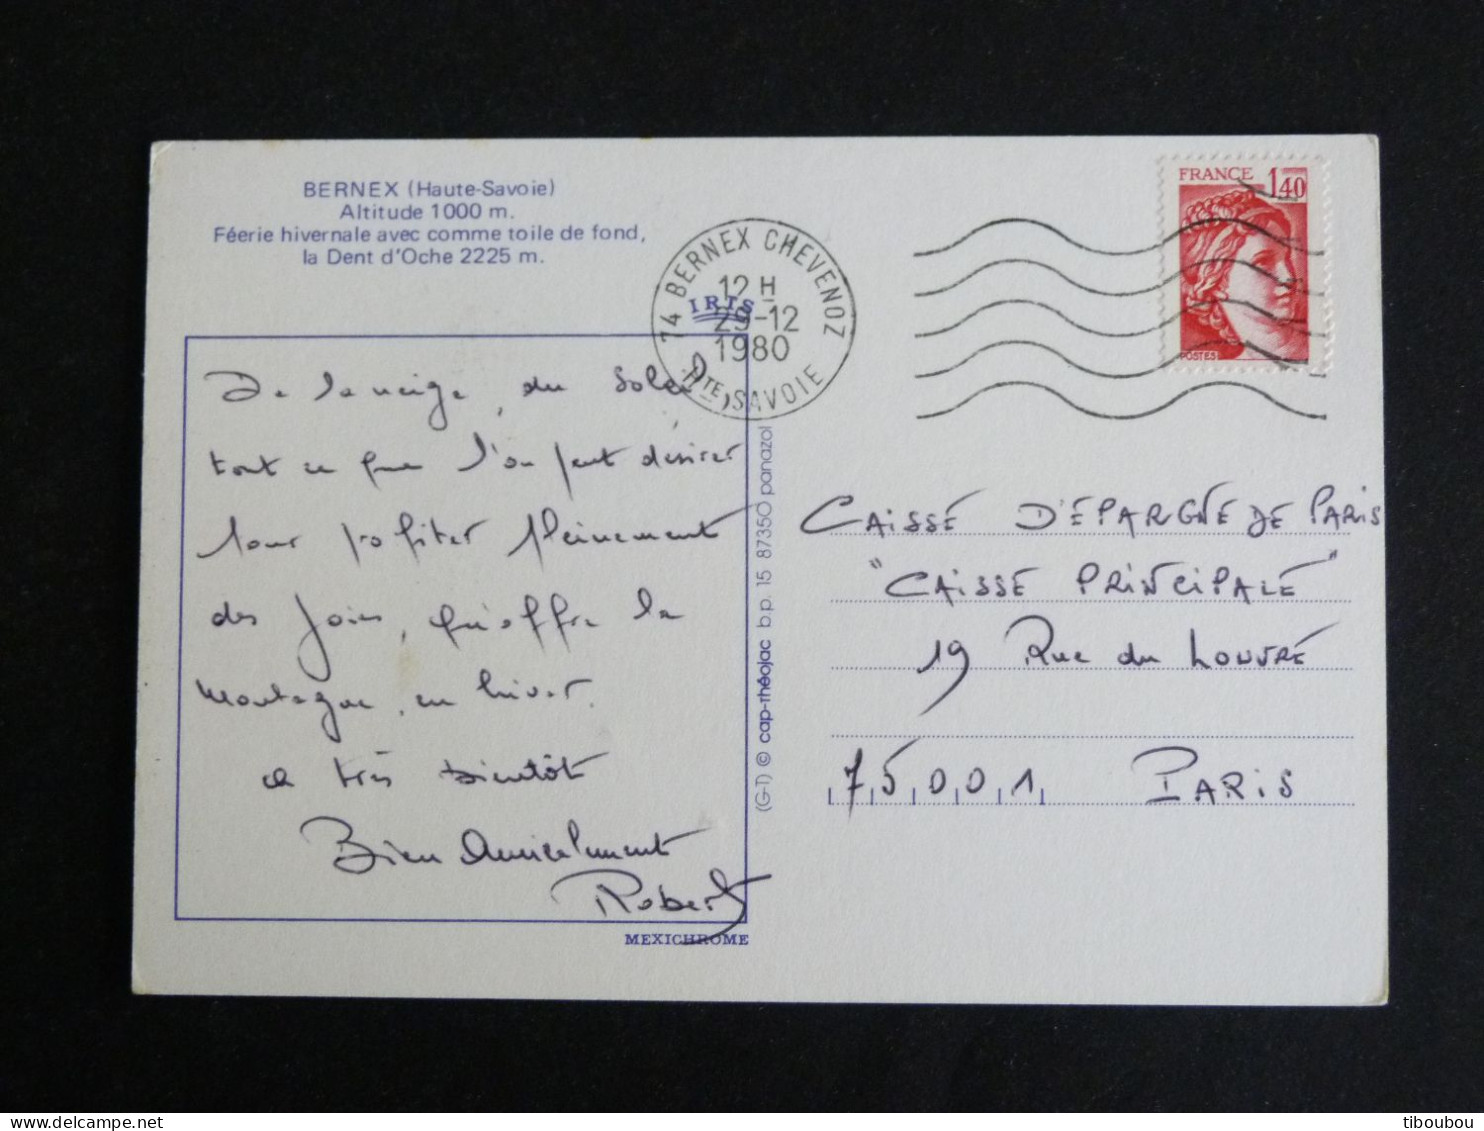 BERNEX (Haute-Savoie)
Altitude 1000 m.
Féerie hivernale avec comme toile de fond,
la Dent d'Oche 2225 m.
IRIS
74 BERNEX CHEVENOZ
12 H
29-12
1980
HTE SAVOIE
FRANCE 1,40
POSTES
De la neige, du soleil
tout ce que l'on peut désirer
pour profiter pleinement
des joies, qu'offre la
Montagne, en hiver.
a très bientôt
Bien Amicalement
Robert
MEXICHROME
(G-T) © cap-théojac b.p. 15 87350 panazol
CAISSE D'EPARGNE DE PARIS
"CAISSE PRINCIPALE"
19 Rue du LOUVRE
75001 PARIS
tiboubou
delcampe.net